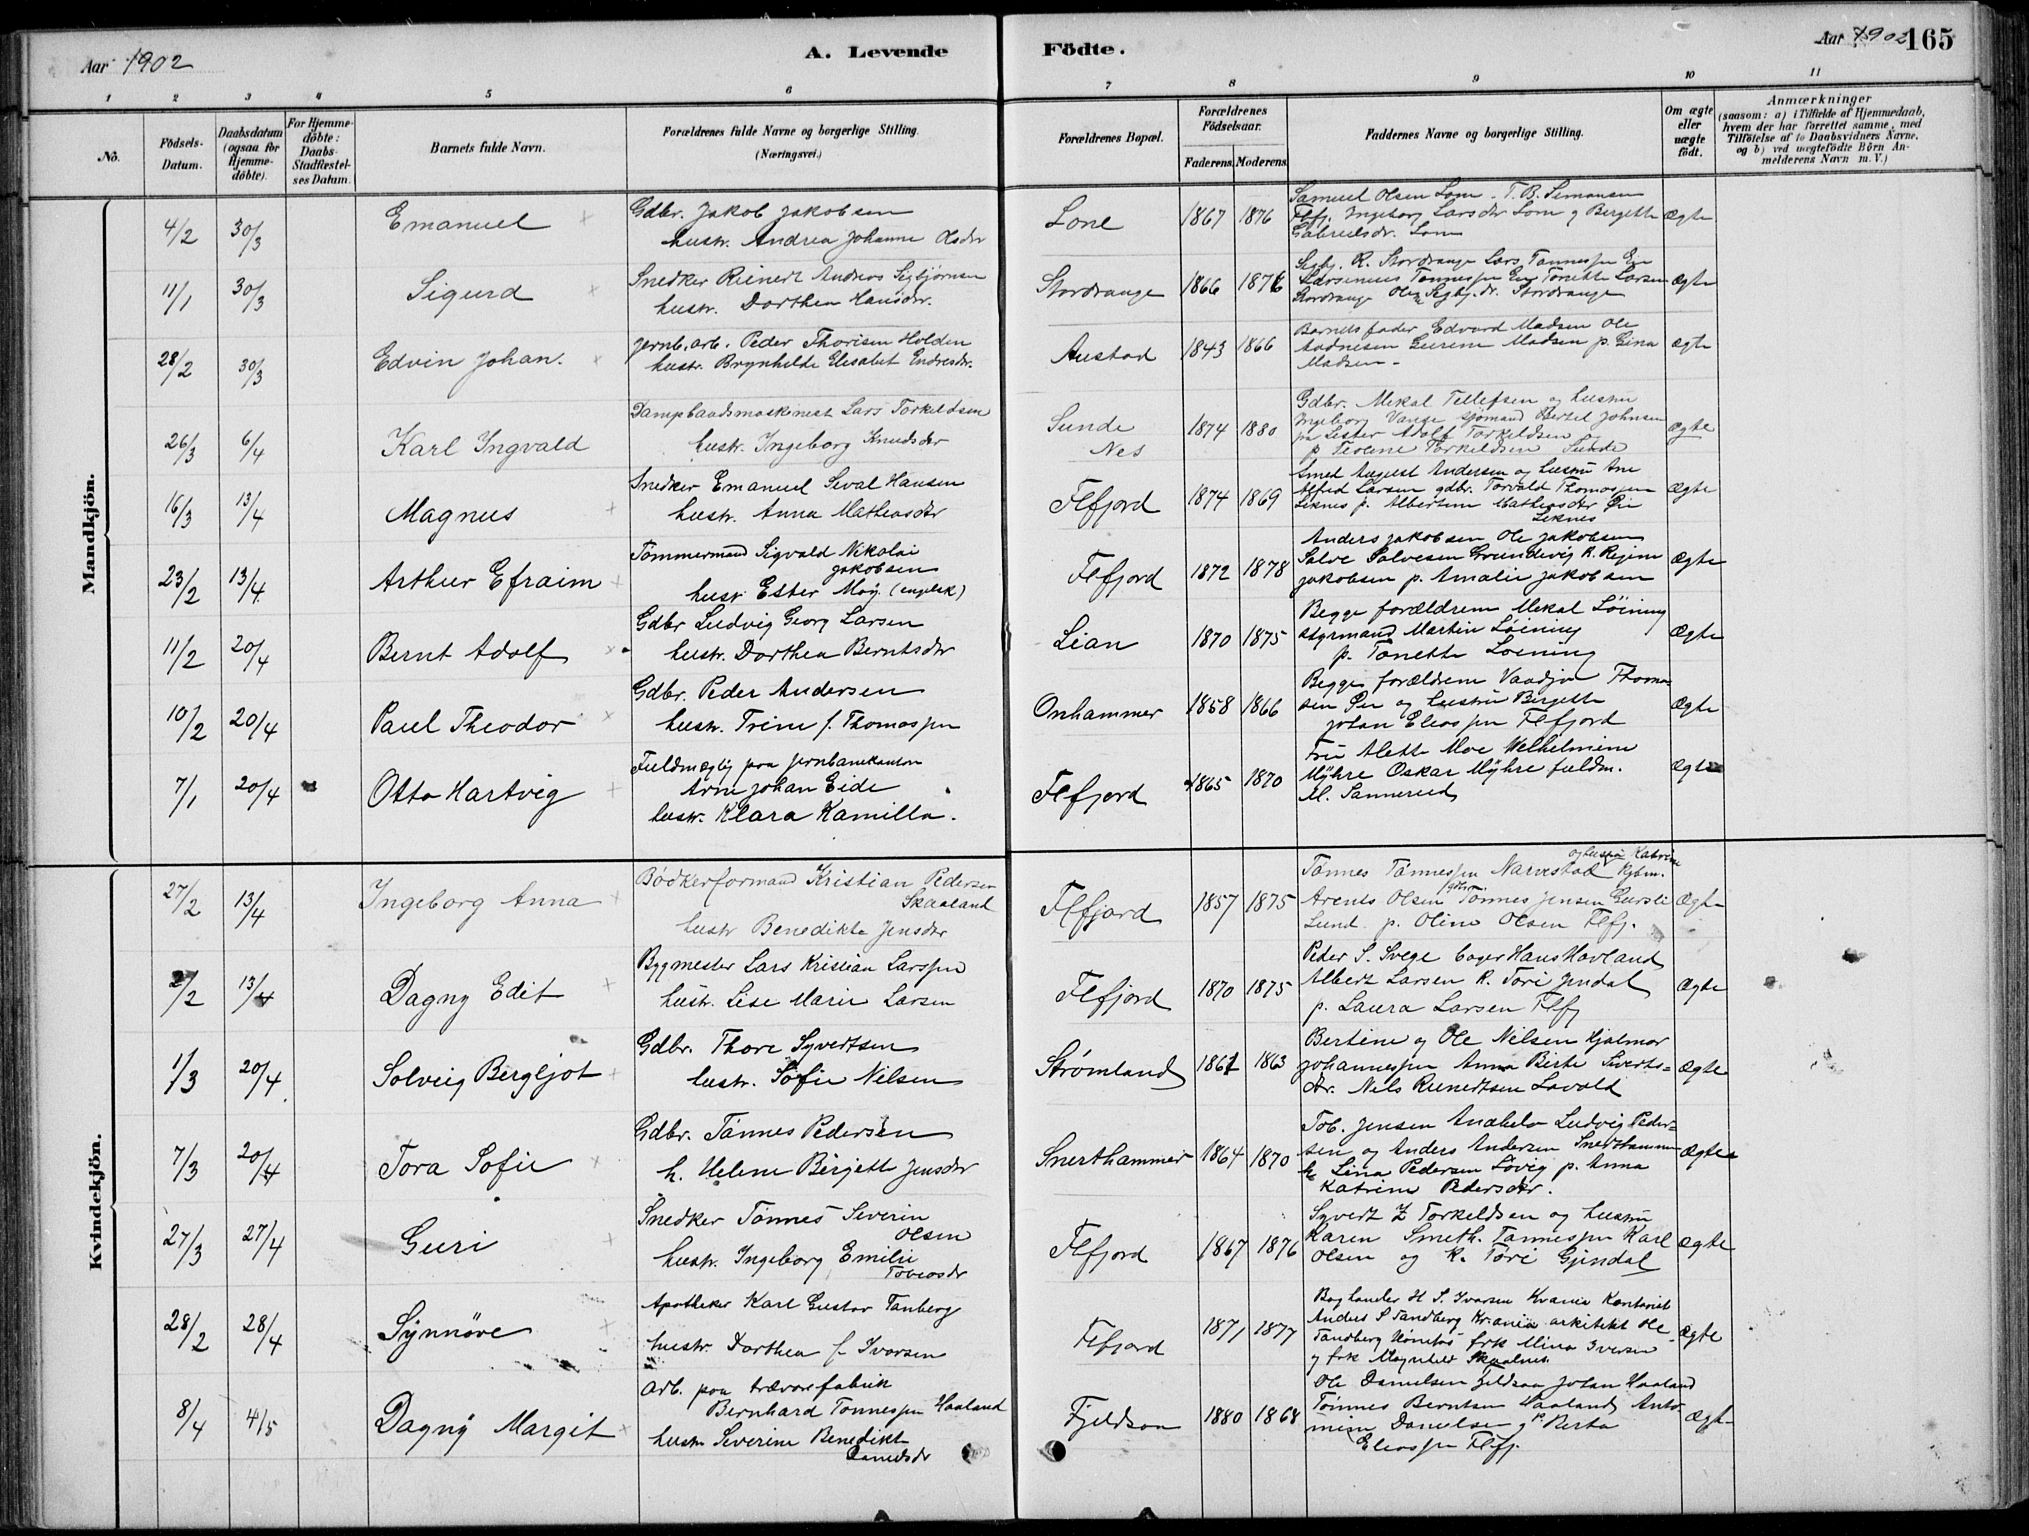 Aar 1902
A. Levende
Födte.
Aar 1902
165
1 2 3 4 5 6 7 8 9 10 11
No.
Födsels-Datum.
Daabsdatum (ogsaa for Hjemme-döbte).
For Hjemme-döbte: Daabs-Stadfæstel-ses Datum.
Barnets fulde Navn.
Forældrenes fulde Navne og borgerlige Stilling.
(Næringsvei.)
Forældrenes Bopæl.
Forældrenes Födselsaar.
Faderens. Moderens.
Faddernes Navne og borgerlige Stilling.
Om ægte eller uægte födt.
Anmærkninger
(saasom: a) i Tilfælde af Hjemmedaab,
hvem der har forrettet samme, med
Tilföielse af to Daabsvidners Navne,
og b) ved uægtefödte Börn An-
melderens Navn m. V.)
Mandkjön.
4/2 30/3 Emanuel
Gdbr. Jakob Jakobsen
hustr. Andrea Johanne Olsdr
Lone 1867 1876
Samuel Olsen Lone. T. B. Simonsen
Flfj. Ingeborg Larsdtr Lone og Bergette
Gabrielsdr. Lone
Ægte
11/1 30/3 Sigurd
Snedker Reinert Andreas Sigbjørnsen
hustr. Dorthea Hansdtr.
Stordrange 1866 1876
Sigbj. R. Stordrange Lars Tønnespn
Tonette Larsen
Stordrange Sigbj.dr. Stordrange
Ægte
28/2 30/3 Edvin Johan.
Jernb.arb. Peder Thorisen Holden
hustr. Brynhilde Elisabet Endresdtr.
Austad 1843 1866
Barnets fader Edvard Madsen Ole
Aadnesen Gurine Madsen p. Gina
Madsen -
Ægte
26/3 6/4 Karl Ingvald
Dampbaadsmaskinest Lars Torkeldsen
hustr. Ingeborg Knudsdtr
Sunde
Nes
1874 1880
Gdbr. Mikal Tellefsen og hustru
Ingeborg Vange sjømand Bertel Johnsen
Lister Adolf Torkeldsen
p Teoline Torkeldsen Sunde
Ægte
16/3 13/4 Magnus
Snedker Emanuel Sival Hansen
hustr. Anna Mathiasdtr
Flfjord 1874 1869
Smed August Andersen og hustru Ane
Alfred Larsen gdbr. Torvald Thomaspn
Leknes p. Albertine Mathiasdtr Øie
Leknes
Ægte
23/2 13/4 Arthur Efraim
Tømmermand Sigvald Nikolai
Jakobsen
hustr Ester May (engelsk)
Flfjord 1872 1878
Anders Jakobsen Ole Jakobsen
Salve Salvesen Grundevig K. Regine
Jakobsen p. Amalie Jakobsen
Ægte
11/2 20/4 Bernt Adolf
Gdbr Ludvig Georg Larsen
hustr. Dorthea Berntsdtr
Lian 1870 1875
Begge forældrene Mikal Løining
styrmand Martin Løining
p. Tonette Løining
Ægte
10/2 20/4 Paul Theodor
Gdbr. Peder Andersen
hustr. Trine f. Thomaspn
Onhammer 1858 1866
Begge forældrene Vaadjon Thoma-
sen Øie og hustru Birgitte
Johan Eliaspn Flfjord
Ægte
7/1 20/4 Otto Hartvig
Fuldmægtig paa jernbanekontor
Arne Johan Eide
hustr. Klara Kamilla.
Flfjord 1865 1870
Fru Alette Moe Vilhelmine
Myhre Oskar Myhre fuldm.
M. Sannerud
Ægte
Kvindekjön.
27/2 13/4 Ingeborg Anna
Bødkerformand Kristian Pedersen
Skaaland
hustr Benedikte Jensdtr
Flfjord 1857 1875
og hustru Katrine
Tønnes Tønnespn Narvestad Kjbm.
Arents Olsen gdbr. Tønnes Jensen Gursli
Lund p. Oline Olsen Flfj.
Ægte
2/2 13/4 Dagny Edit
Bygmester Lars Kristian Larspn
hustr. Lise Marie Larsen
Flfjord 1870 1875
Peder S. Svege bager Hans Hovland
Albert Larsen K. Tori Jendal
p. Laura Larsen Flfj
Ægte
1/3 20/4 Solveig Bergljot
Gdbr. Thore Syvertsen
hustr. Sofie Nilsen
Strømland 1861 1863
Bertine og Ole Nilsen Hjalmar
Johannespn Anna Birte Siverts-
dtr. Nils Reinertsen Lavold
Ægte
7/3 20/4 Tora Sofie
Gdbr. Tønnes Pedersen
h. Helene Birgitte Jensdtr
Snerthammer 1864 1870
Tob. Jensen Anabelø Ludvig Peder-
sen og Anders Andersen Snerthammer
h. Lina Pedersen Løvig p. Anna
Katrine Pedersdtr.
Ægte
27/3 27/4 Guri
Snedker Tønnes Severin
Olsen
hustr. Ingeborg Emilie
Tobiasdtr
Flfjord 1867 1876
Syvert Z Torkeldsen og hustru
Karen Smeth. Tønnespn Karl
Olsen og K. Tøri Gjendal
Ægte
28/2 28/4 Synnöve
Apotheker Karl Gustav Tanberg
hustr. Dorthea f Ivarsen
Flfjord 1871 1877
Boghandler H S. Ivarsen Krania Kontorist
Anders S Tandberg Krania arkitekt Ole
Tandberg Hønefos frk Mina Iversen
og frk Magnhild Skaalnes.
Ægte
8/4 4/5 Dagny Margit
Arb. paa trævarefabrik
Bernhard Tønnespn Haaland
hustr Severine Benedikte
Danielsdr
Fjeldsaa 1880 1868
Ole Danielsen Fjeldsaa Johan Haaland
Tønnes Berntsen Haaland Anto-
mine Danielsen og p. Berta
Eliaspn Flfj.
Ægte